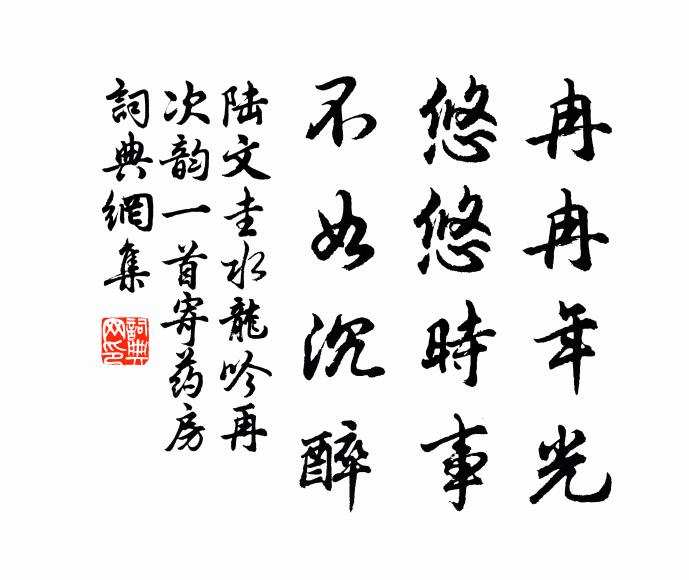 冉冉年光
悠悠時事
不如沉醉
陆文圭水龍吟再
次韵一首寄药房
詞典網集
詞典网印